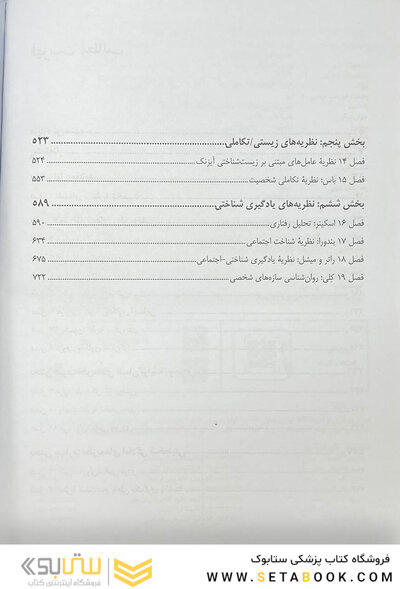 بخش پنجم: نظریه‌های زیستی/تکاملی ..... ۵۲۳
فصل ۱۴ نظریهٔ عامل‌های مبتنی بر زیست‌شناختی آیزنک ..... ۵۲۴
فصل ۱۵ باس: نظریهٔ تکاملی شخصیت ..... ۵۵۳
بخش ششم: نظریه‌های یادگیری شناختی ..... ۵۸۹
فصل ۱۶ اسکینر: تحلیل رفتاری ..... ۵۹۰
فصل ۱۷ بندورا: نظریهٔ شناخت اجتماعی ..... ۶۳۴
فصل ۱۸ راتر و میشل: نظریهٔ یادگیری شناختی-اجتماعی ..... ۶۷۵
فصل ۱۹ کلی: روان‌شناسی سازه‌های شخصی ..... ۷۲۲
فروشگاه کتاب پزشکی ستابوک
WWW.SETABOOK.COM
ستابوک
فروشگاه اینترنتی کتاب